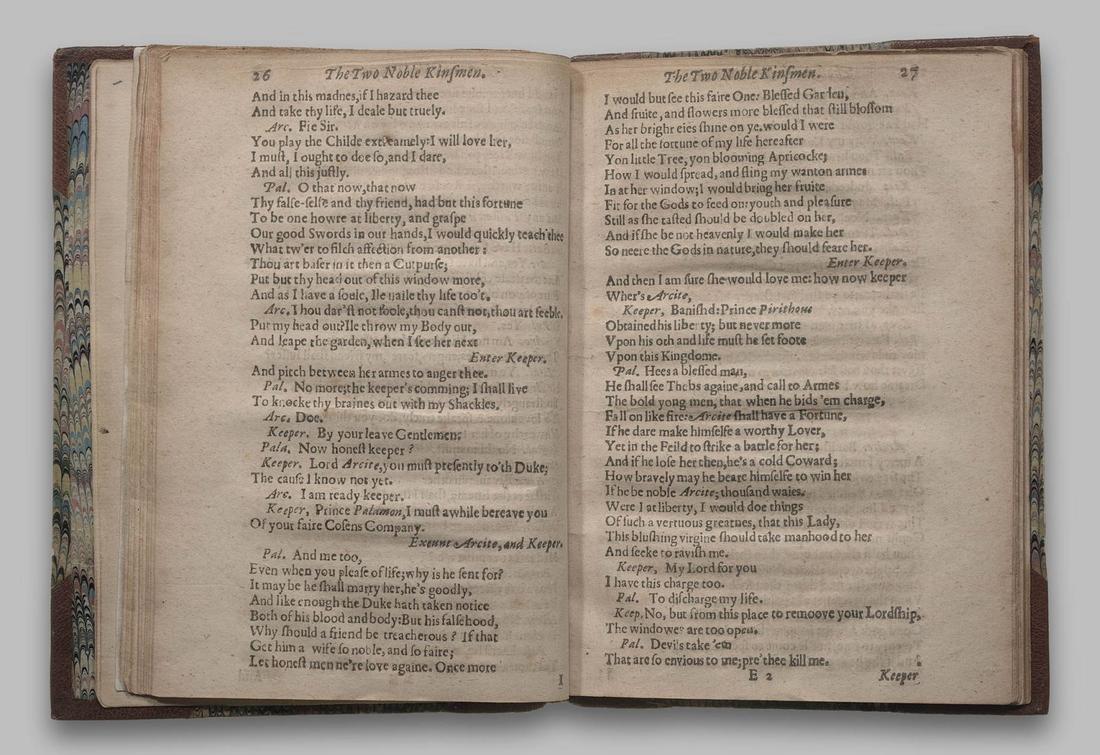 26 The Two Noble Kinſmen.
And in this madnes,if I hazard thee
And take thy life, I deale but truely.
Arc. Fie Sir.
You play the Childe extreamely:I will love her,
I muſt, I ought to doe ſo,and I dare,
And all this juſtly.
Pal. O that now,that now
Thy falſe-ſelfe and thy friend, had but this fortune
To be one howre at liberty, and graſpe
Our good Swords in our hands,I would quickly teach thee
What tw'er to filch affection from another:
Thou art baſer in it then a Cutpurſe;
Put but thy head out of this window more,
And as I have a ſoule, Ile naile thy life too't.
Arc. Thou dar'ſt not foole,thou canſt not,thou art feeble.
Put my head out?Ile throw my Body out,
And leape the garden,when I ſee her next
Enter Keeper.
And pitch between her armes to anger thee.
Pal. No more;the keeper's comming; I ſhall live
To knocke thy braines out with my Shackles.
Arc. Doe.
Keeper. By your leave Gentlemen:
Pala. Now honeſt keeper?
Keeper. Lord Arcite,you muſt preſently to'th Duke;
The cauſe I know not yet.
Arc. I am ready keeper.
Keeper, Prince Palamon,I muſt awhile bereave you
Of your faire Coſens Company.
Exeunt Arcite,and Keeper.
Pal. And me too,
Even when you pleaſe of life;why is he ſent for?
It may be he ſhall marry her,he's goodly,
And like enough the Duke hath taken notice
Both of his blood and body:But his falſehood,
Why ſhould a friend be treacherous? If that
Get him a wife ſo noble,and ſo faire;
Let honeſt men ne're love againe. Once more
I
The Two Noble Kinſmen. 27
I would but ſee this faire One: Bleſſed Garden,
And fruite, and flowers more bleſſed that ſtill bloſſom
As her bright eies ſhine on ye.would I were
For all the fortune of my life hereafter
Yon little Tree,yon blooming Apricocke;
How I would ſpread, and fling my wanton armes
In at her window;I would bring her fruite
Fit for the Gods to feed on:youth and pleaſure
Still as ſhe taſted ſhould be doubled on her,
And if ſhe be not heavenly I would make her
So neere the Gods in nature,they ſhould feare her.
Enter Keeper.
And then I am ſure ſhe would love me: how now keeper
Wher's Arcite,
Keeper, Baniſhd:Prince Pirithous
Obtained his liberty; but never more
Vpon his oth and life muſt he ſet foote
Vpon this Kingdome.
Pal. Hees a bleſſed man,
He ſhall ſee Thebs againe,and call to Armes
The bold yong men, that when he bids 'em charge,
Fall on like fire: Arcite ſhall have a Fortune,
If he dare make himſelfe a worthy Lover,
Yet in the Feild to ſtrike a battle for her;
And if he loſe her then,he's a cold Coward;
How bravely may he beare himſelfe to win her
If he be noble Arcite; thouſand waies.
Were I at liberty, I would doe things
Of ſuch a vertuous greatnes, that this Lady,
This bluſhing virgine ſhould take manhood to her
And ſeeke to raviſh me.
Keeper, My Lord for you
I have this charge too.
Pal. To diſcharge my life.
Keep.No, but from this place to remoove your Lordſhip,
The windowes are too open.
Pal. Devils take 'em
That are ſo envious to me;pre'thee kill me.
E 2 Keeper